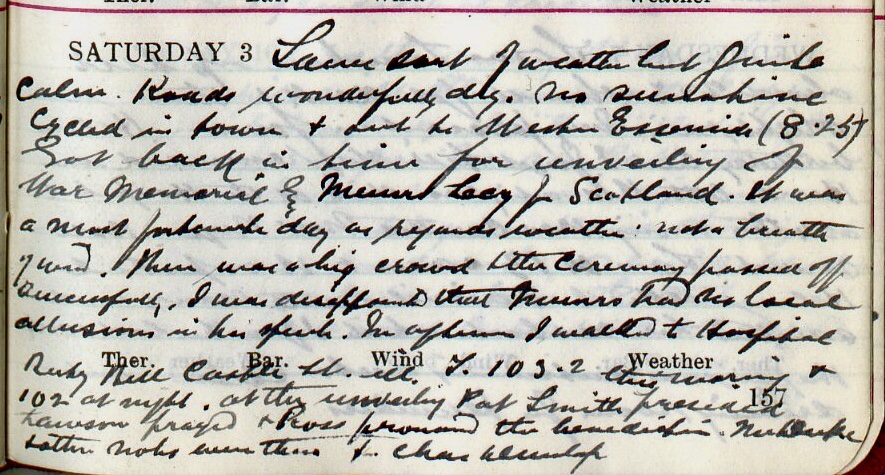 Ther. Bar. Wind Weather
SATURDAY 3 Same sort of weather but quite
calm. Roads wonderfully dry. No sunshine
Cycled in town & out to Wester Essenside (8.25)
Got back in time for unveiling of
War Memorial by Munro Secy for Scotland. It was
a most fortunate day as regards weather: not a breath
of wind. There was a big crowd & the ceremony passed off
successfully. I was disappointed that Munro had no local
allusions in his speech. In afternoon I walked to Hospital
Ther. Bar. Wind Weather
Castle St. ill. T 103.2 this morning &
157
102 at night. At the unveiling Pat Smith presided
Lawson prayed & Ross pronounced the benediction.
& other nobs were there & Chas Dunlop